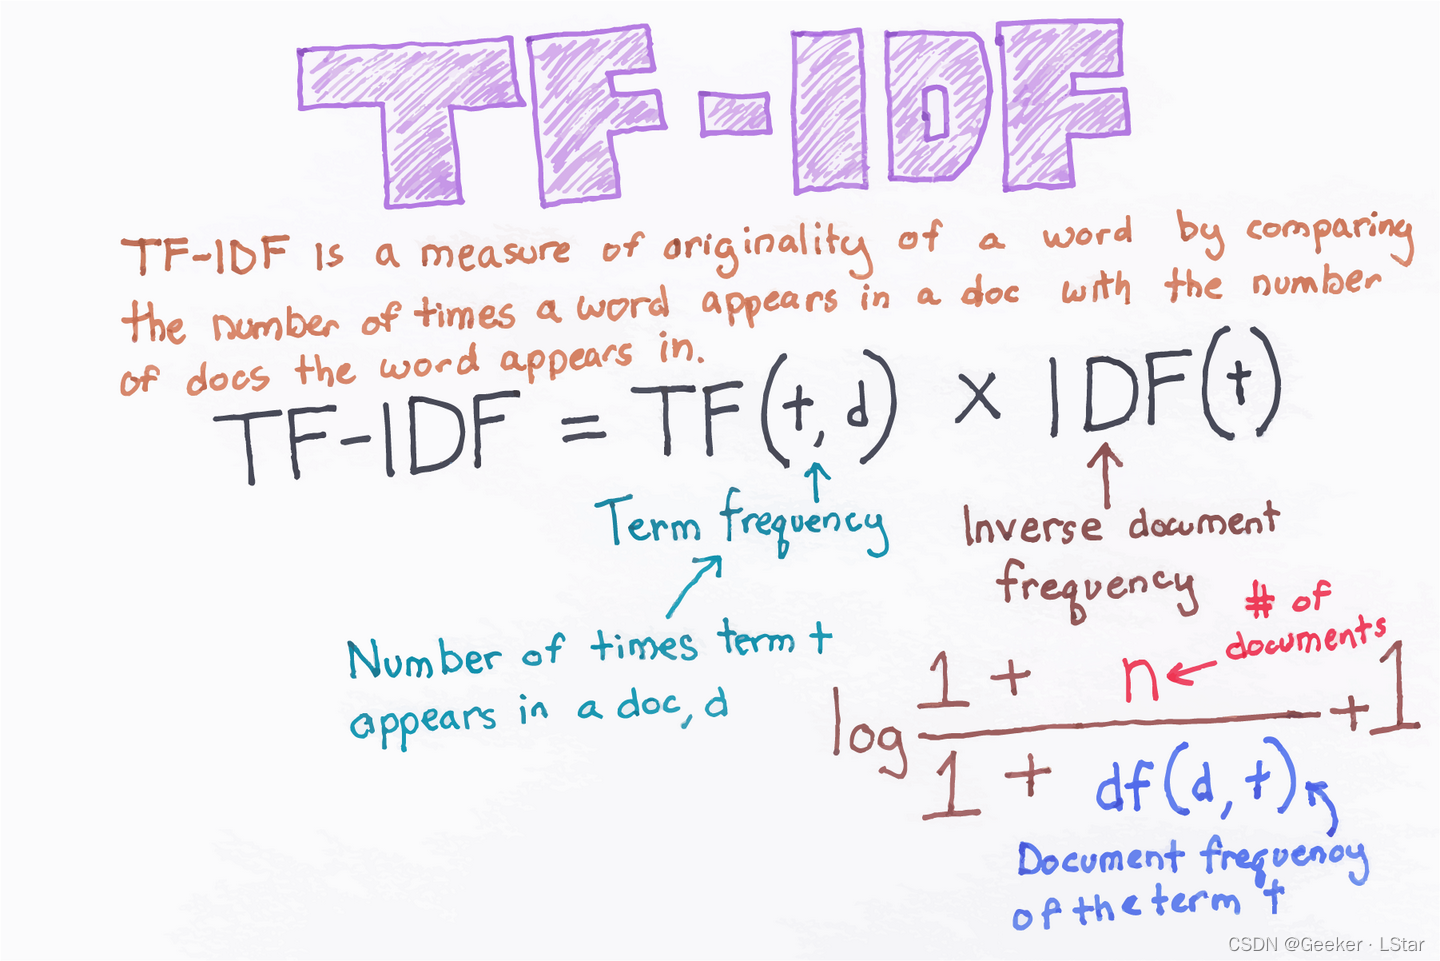 TF-IDF
TF-IDF is a measure of originality of a word by comparing
the number of times a word appears in a doc with the number
of docs the word appears in.
TF-IDF = TF(t, d) × IDF(t)
Term frequency
Inverse document
frequency
Number of times term t
appears in a doc, d
# of
documents
log 1 + n
+1
1 + df(d, t)
Document frequency
of the term t
CSDN @Geeker · LStar